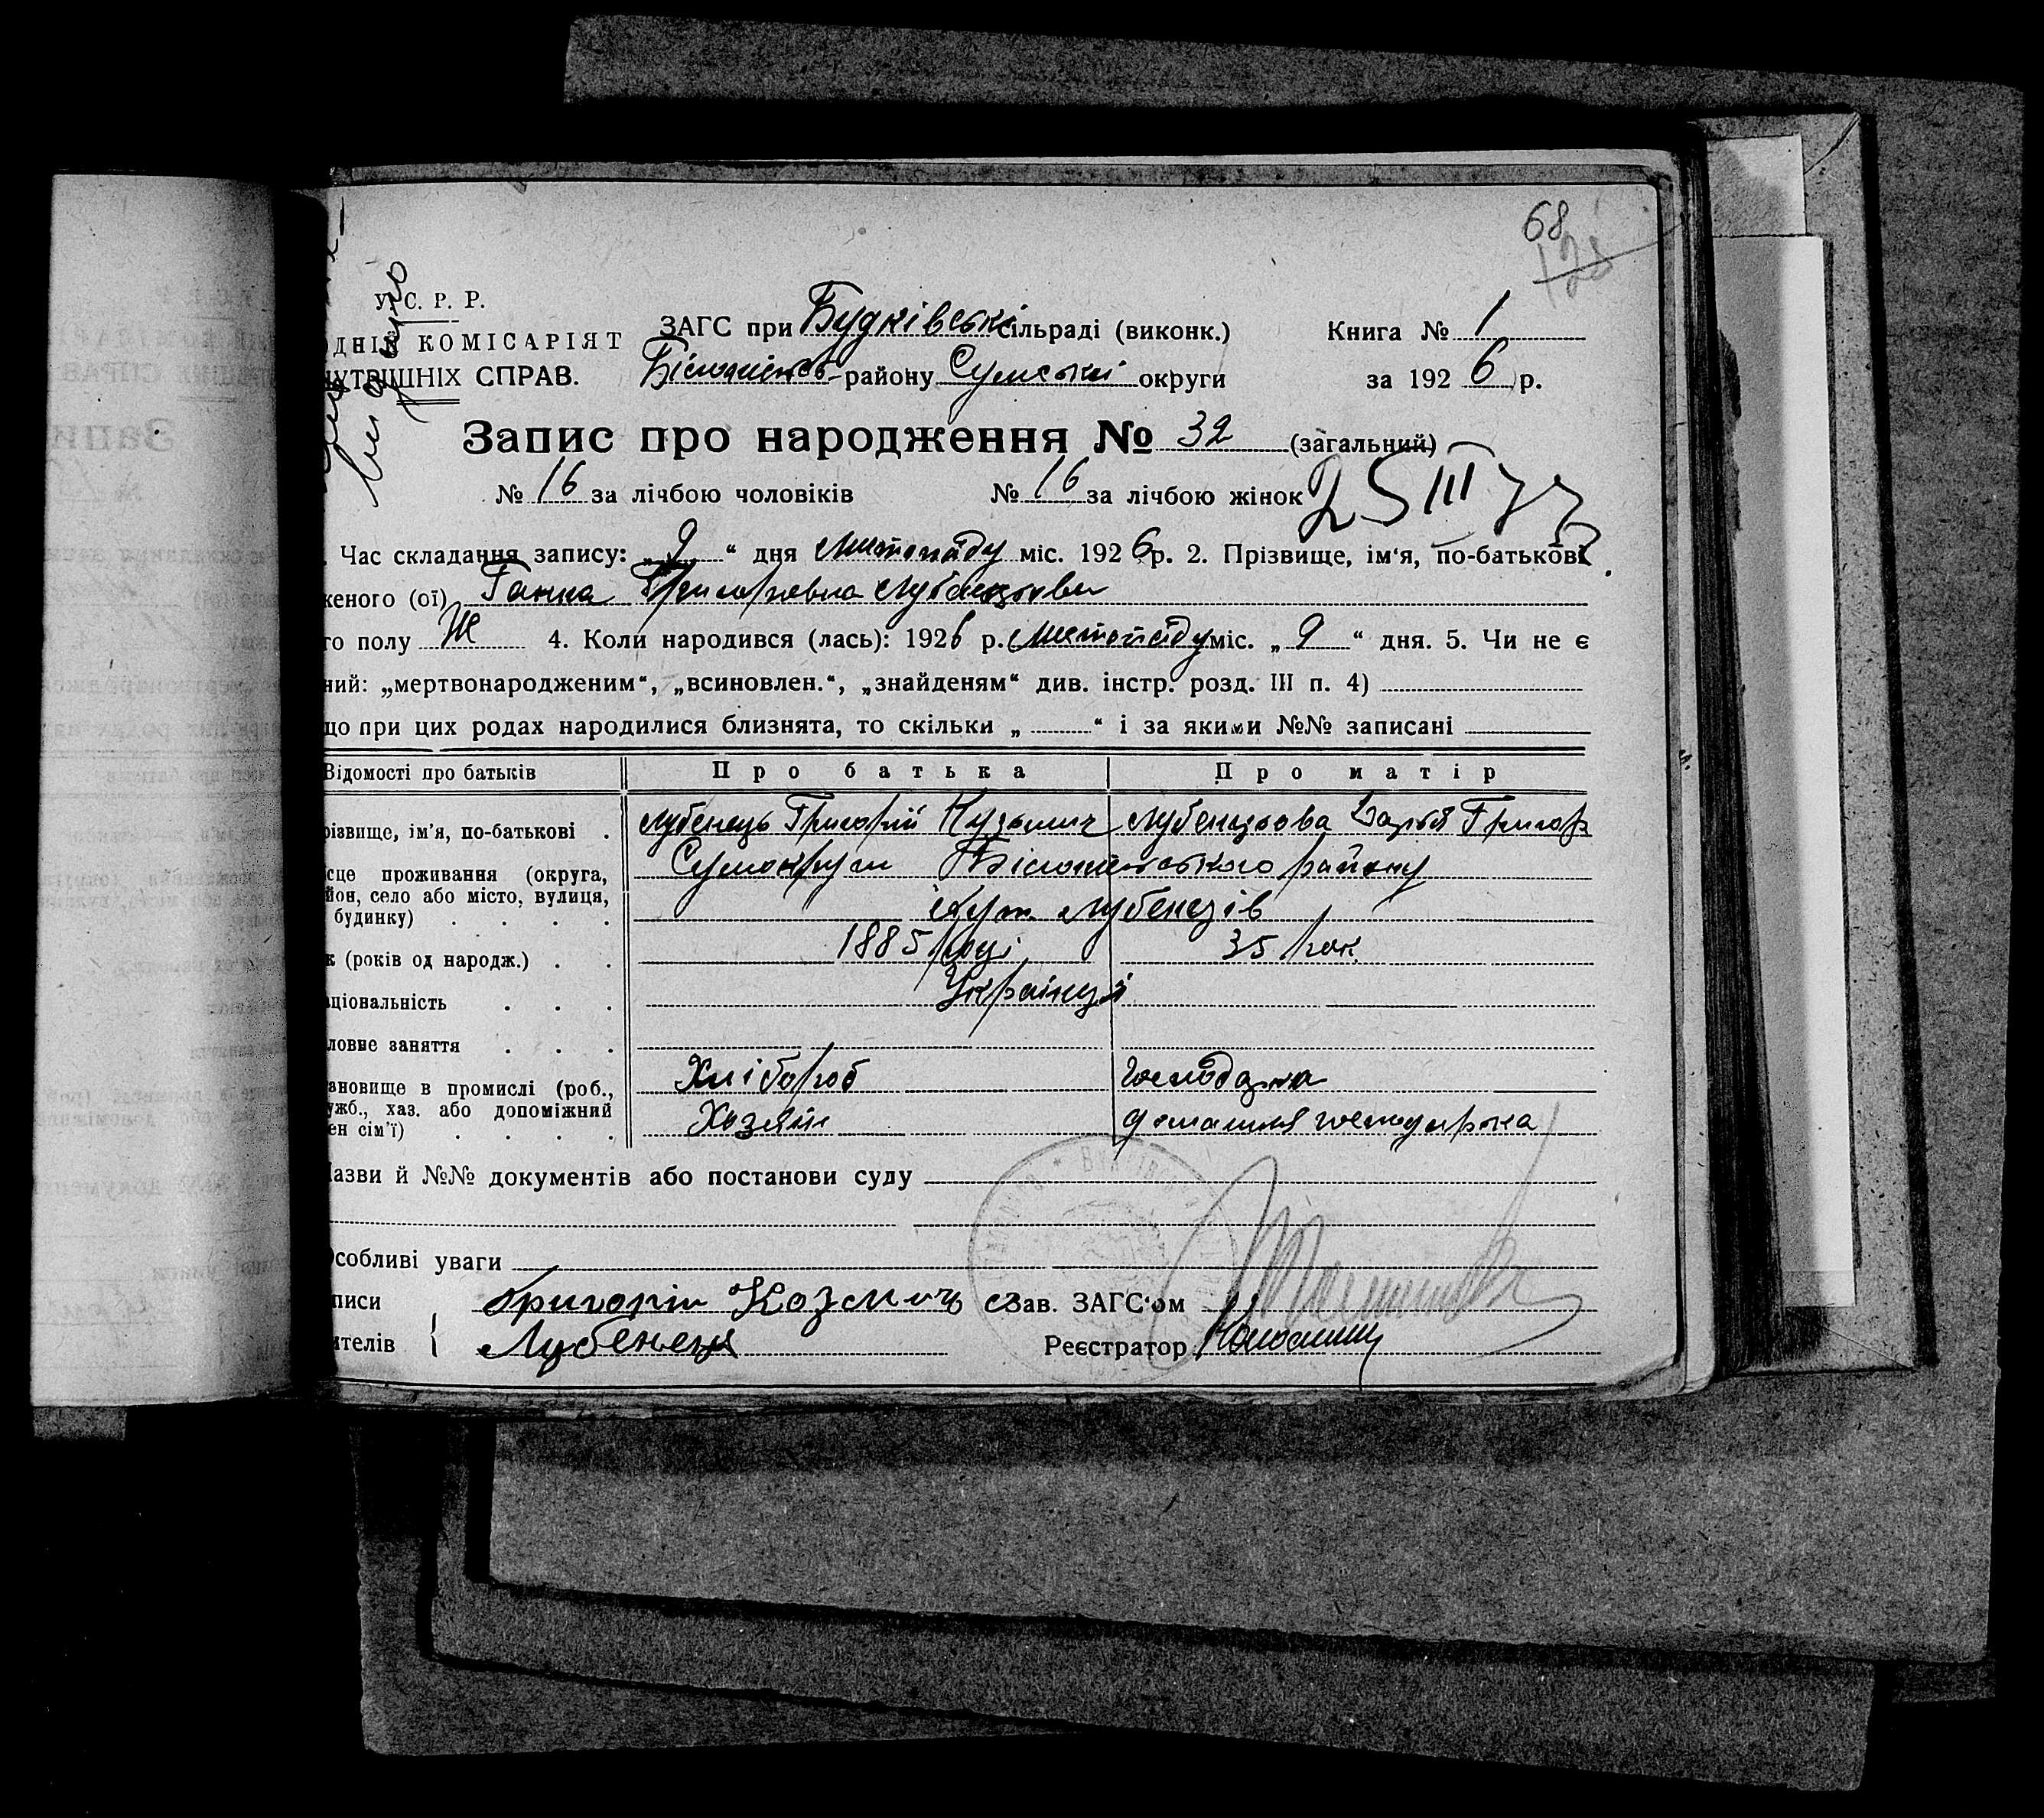 68
128
У. С. Р. Р.
ОДНІЙ КОМІСАРІЯТ
НУТРІШНІХ СПРАВ.
ЗАГС при Будківські сільраді (виконк.)
Білопільсь- району Сумської округи
Книга № 1
за 1926 р.
Запис про народження № 32 (загальний)
№ 16 за лічбою чоловіків № 16 за лічбою жінок
25 III 77
. Час складання запису: „9“ дня листопаду міс. 1926 р. 2. Прізвище, ім‘я, по-батькові
женого (ої) Ганна Григорӥевна Лубенцьова
го полу Ж 4. Коли народився (лась): 1926 р. листопаду міс. „9“ дня. 5. Чи не є
ний: „мертвонародженим“, „всиновлен.“, „знайденям“ див. інстр. розд. III п. 4)
що при цих родах народилися близнята, то скільки „ “ і за якими №№ записані
Відомості про батьків Про батька Про матір
різвище, ім’я, по-батькові . Лубенець Григорій Кузьмич Лубенцьова Дарья Григор
ісце проживання (округа, Сумокруги Білопільського району
йон, село або місто, вулиця,
будинку) . . . . Хут. Лубенців
к (років од народж.) . . 1885 році 35 рок.
аціональність . . . Українці
ловне заняття . . .
ановище в промислі (роб., Хлібороб господарка
ужб., хаз. або допоміжний
ен сім’ї) . . . . Хозяїн домашня господарка
Назви й №№ документів або постанови суду
Особливі уваги
писи Григорій Козмич Зав. ЗАГС‘ом
ителів { Лубенець Реєстратор